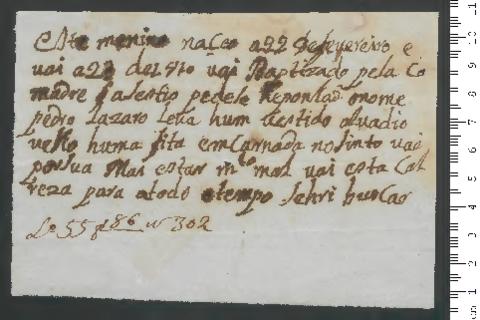 Este menino naçeo a 22 de feyereiro e
vai a 23 del Sto vai Baptizado pela Co
madre f pedese Reponhao o nome
pedro Lazaro Leva hum bestido alvadio
velho huma fita emcarnada no sinto vai
por sua Mai estar mto mal vai esta Cat
reza para a todo otempo Sehri buscar
Lo 55 f 86 No 302